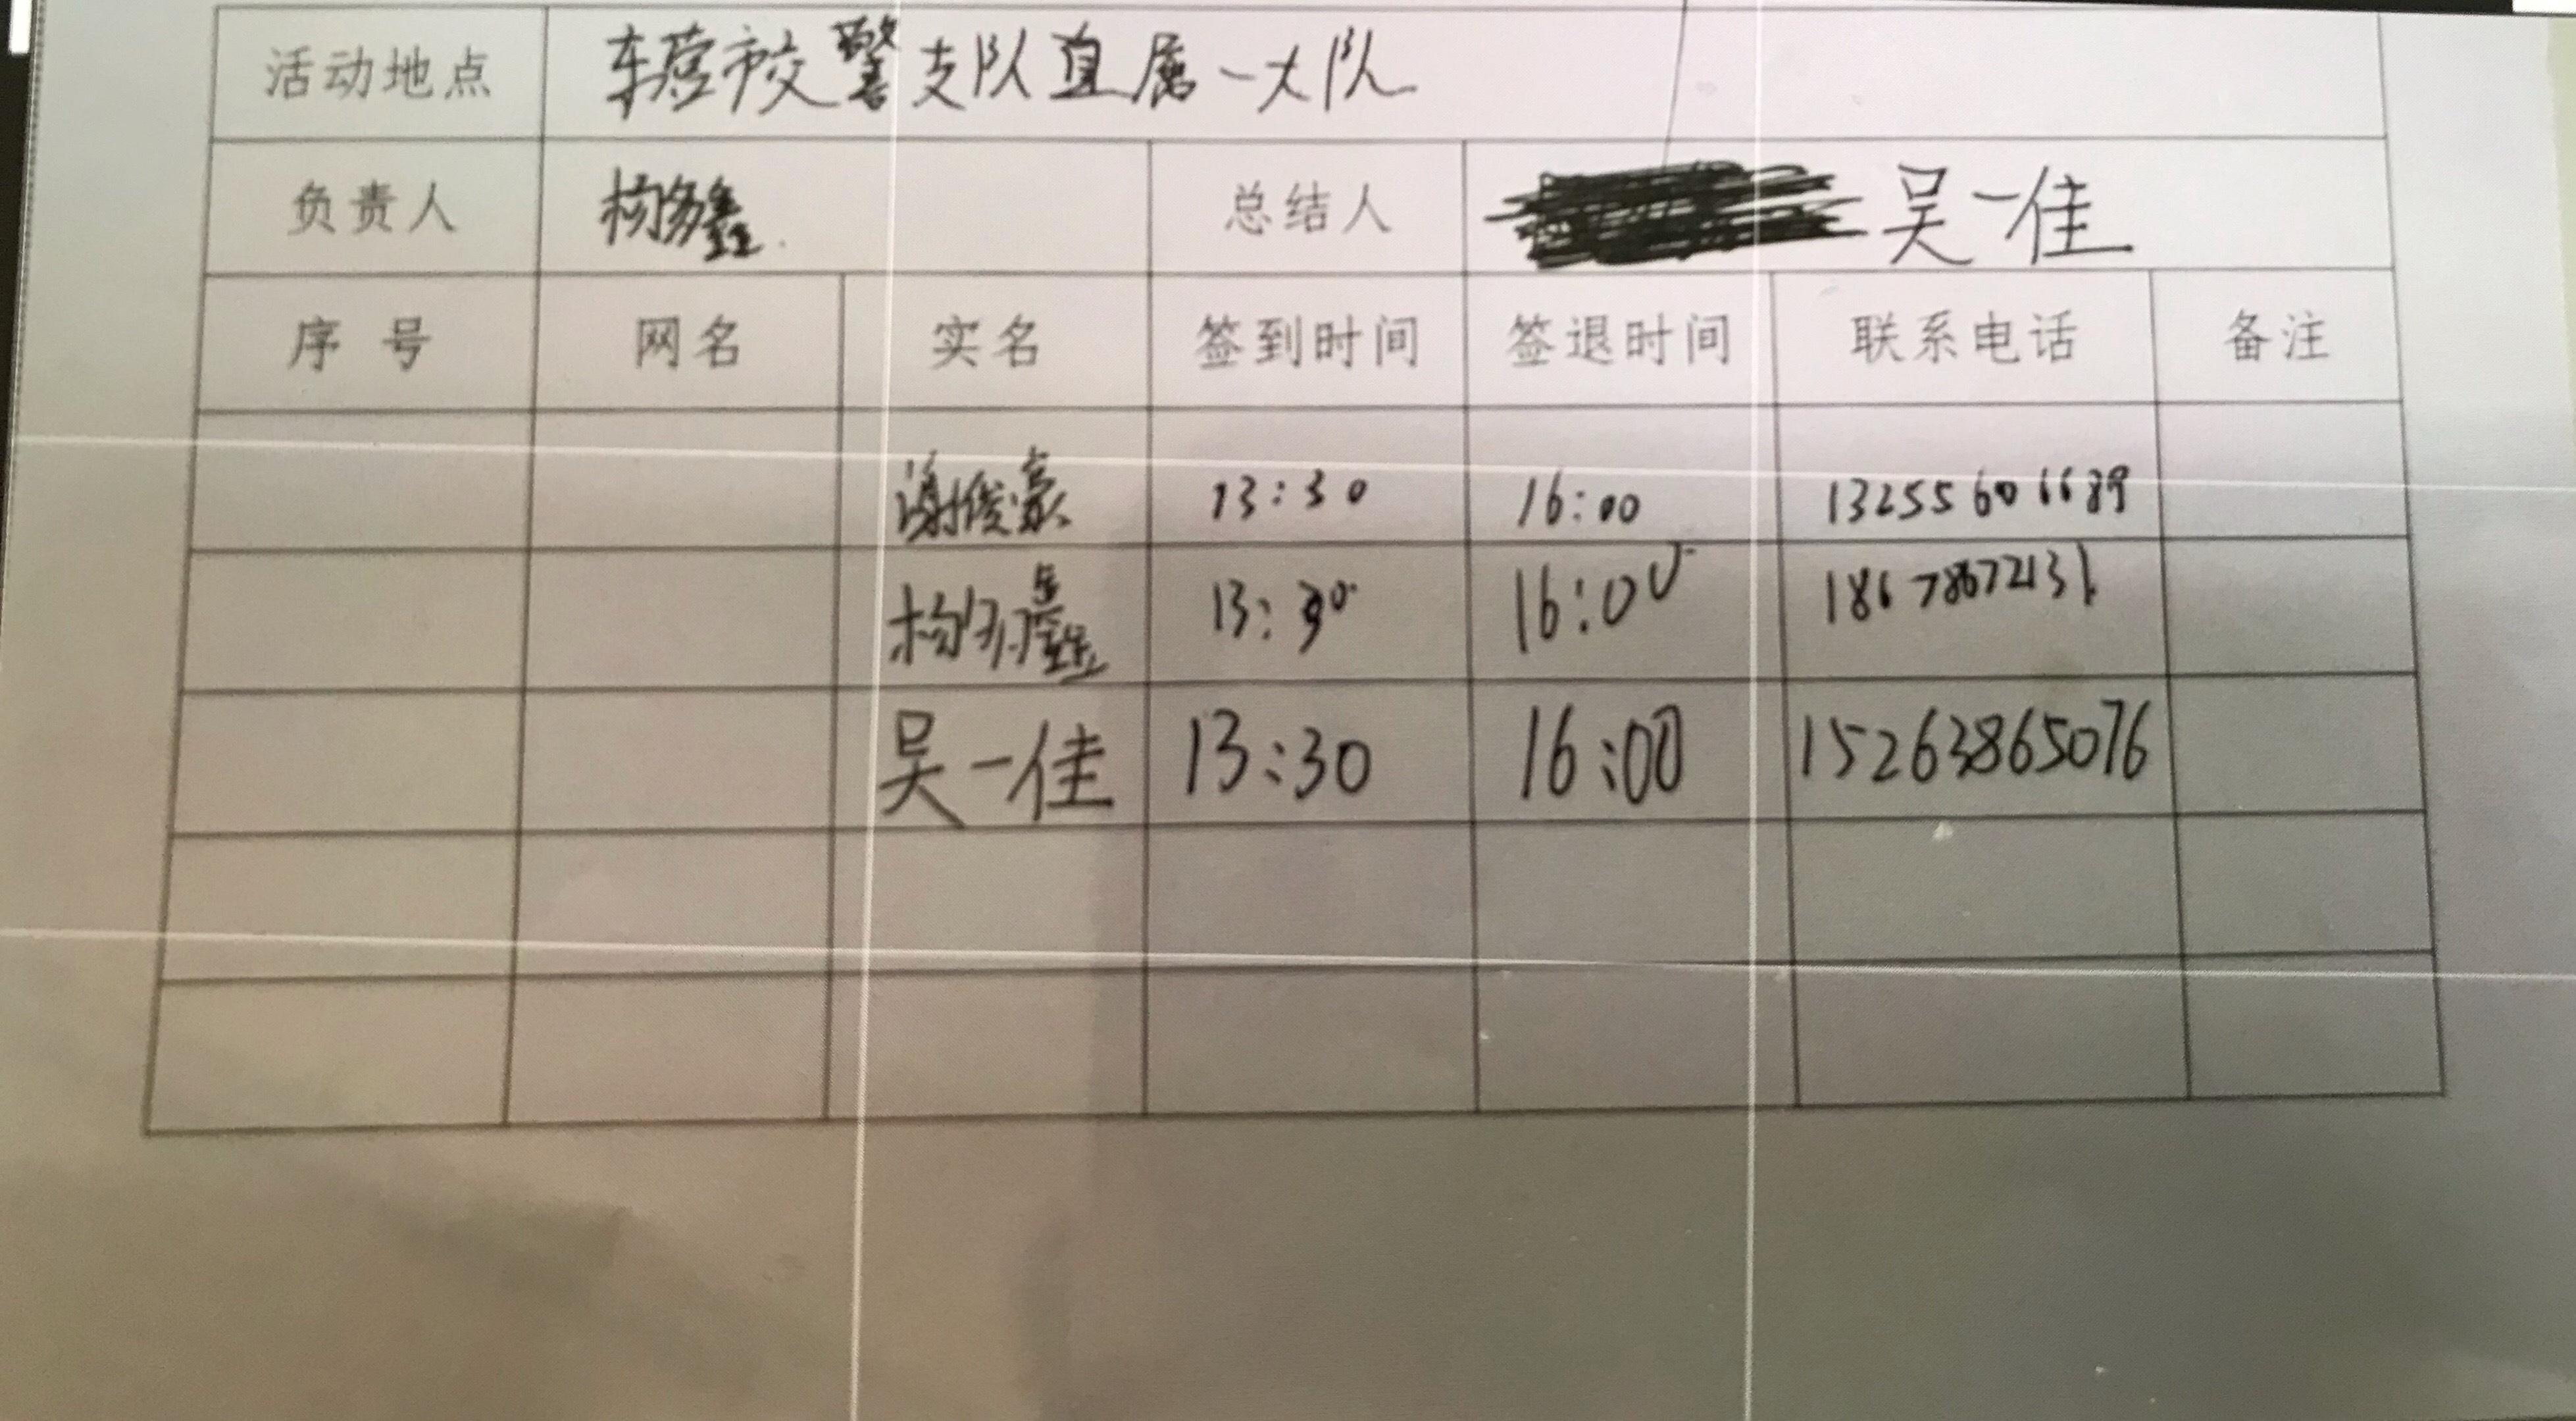 活动地点 东营市交警支队直属一大队
负责人 总结人 吴一佳
序号 网名 实名 签到时间 签退时间 联系电话 备注
谢俊豪 13:30 16:00 13255606689
13:30 16:00 18678672131
吴一佳 13:30 16:00 15263865076